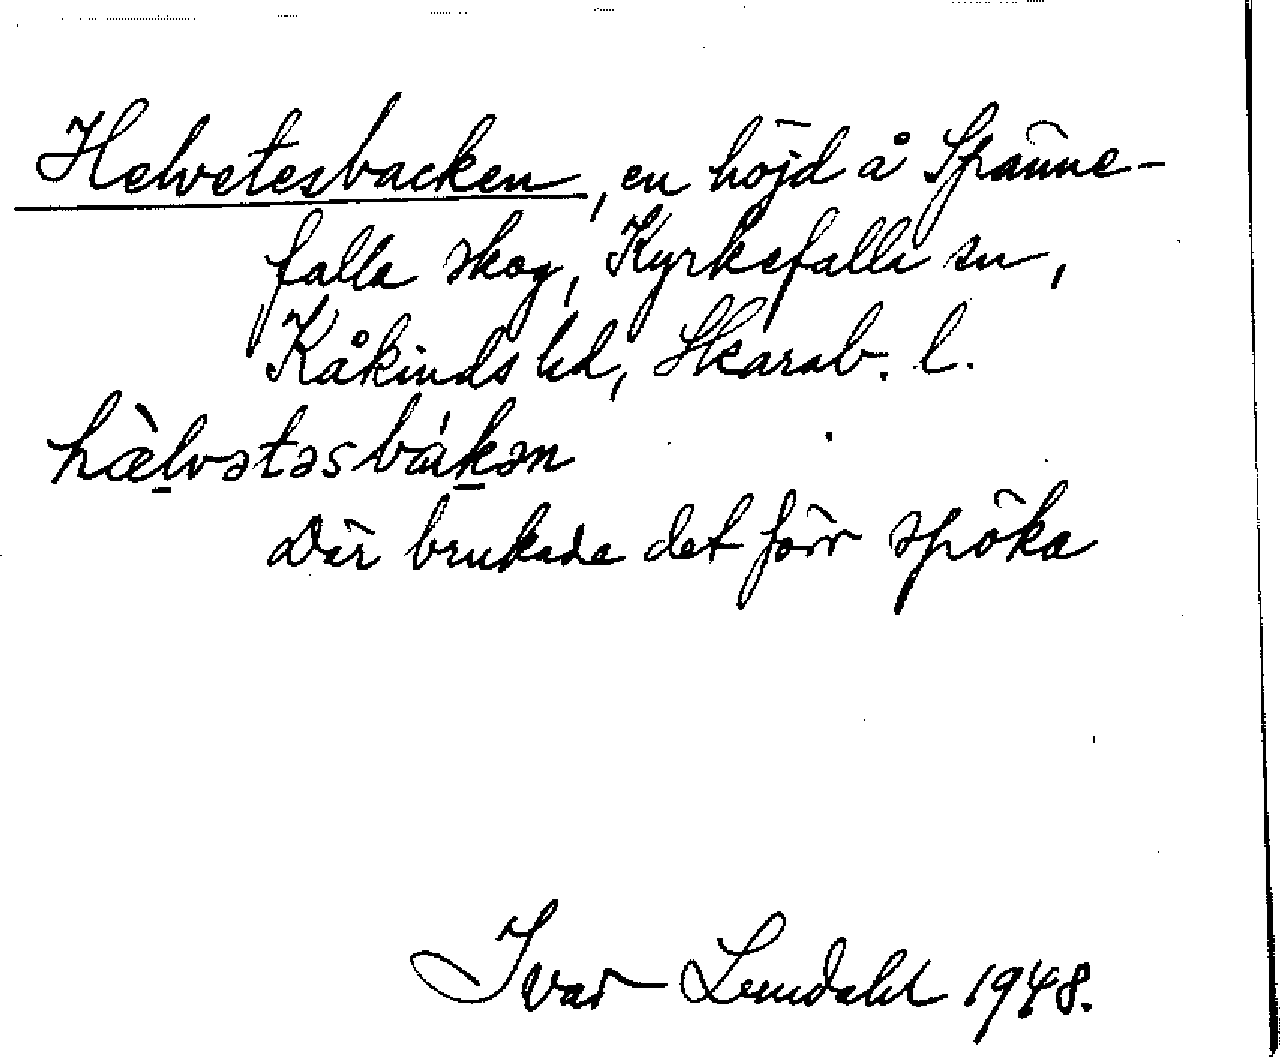 Helvetesbacken, en höjd å Spänne-
falla skog, Kyrkefalla sn,
Kåkinds hd, Skarab. l.
hæ̀lvətəsbákən
Där brukade det förr spöka
Ivar Lundahl 1948.